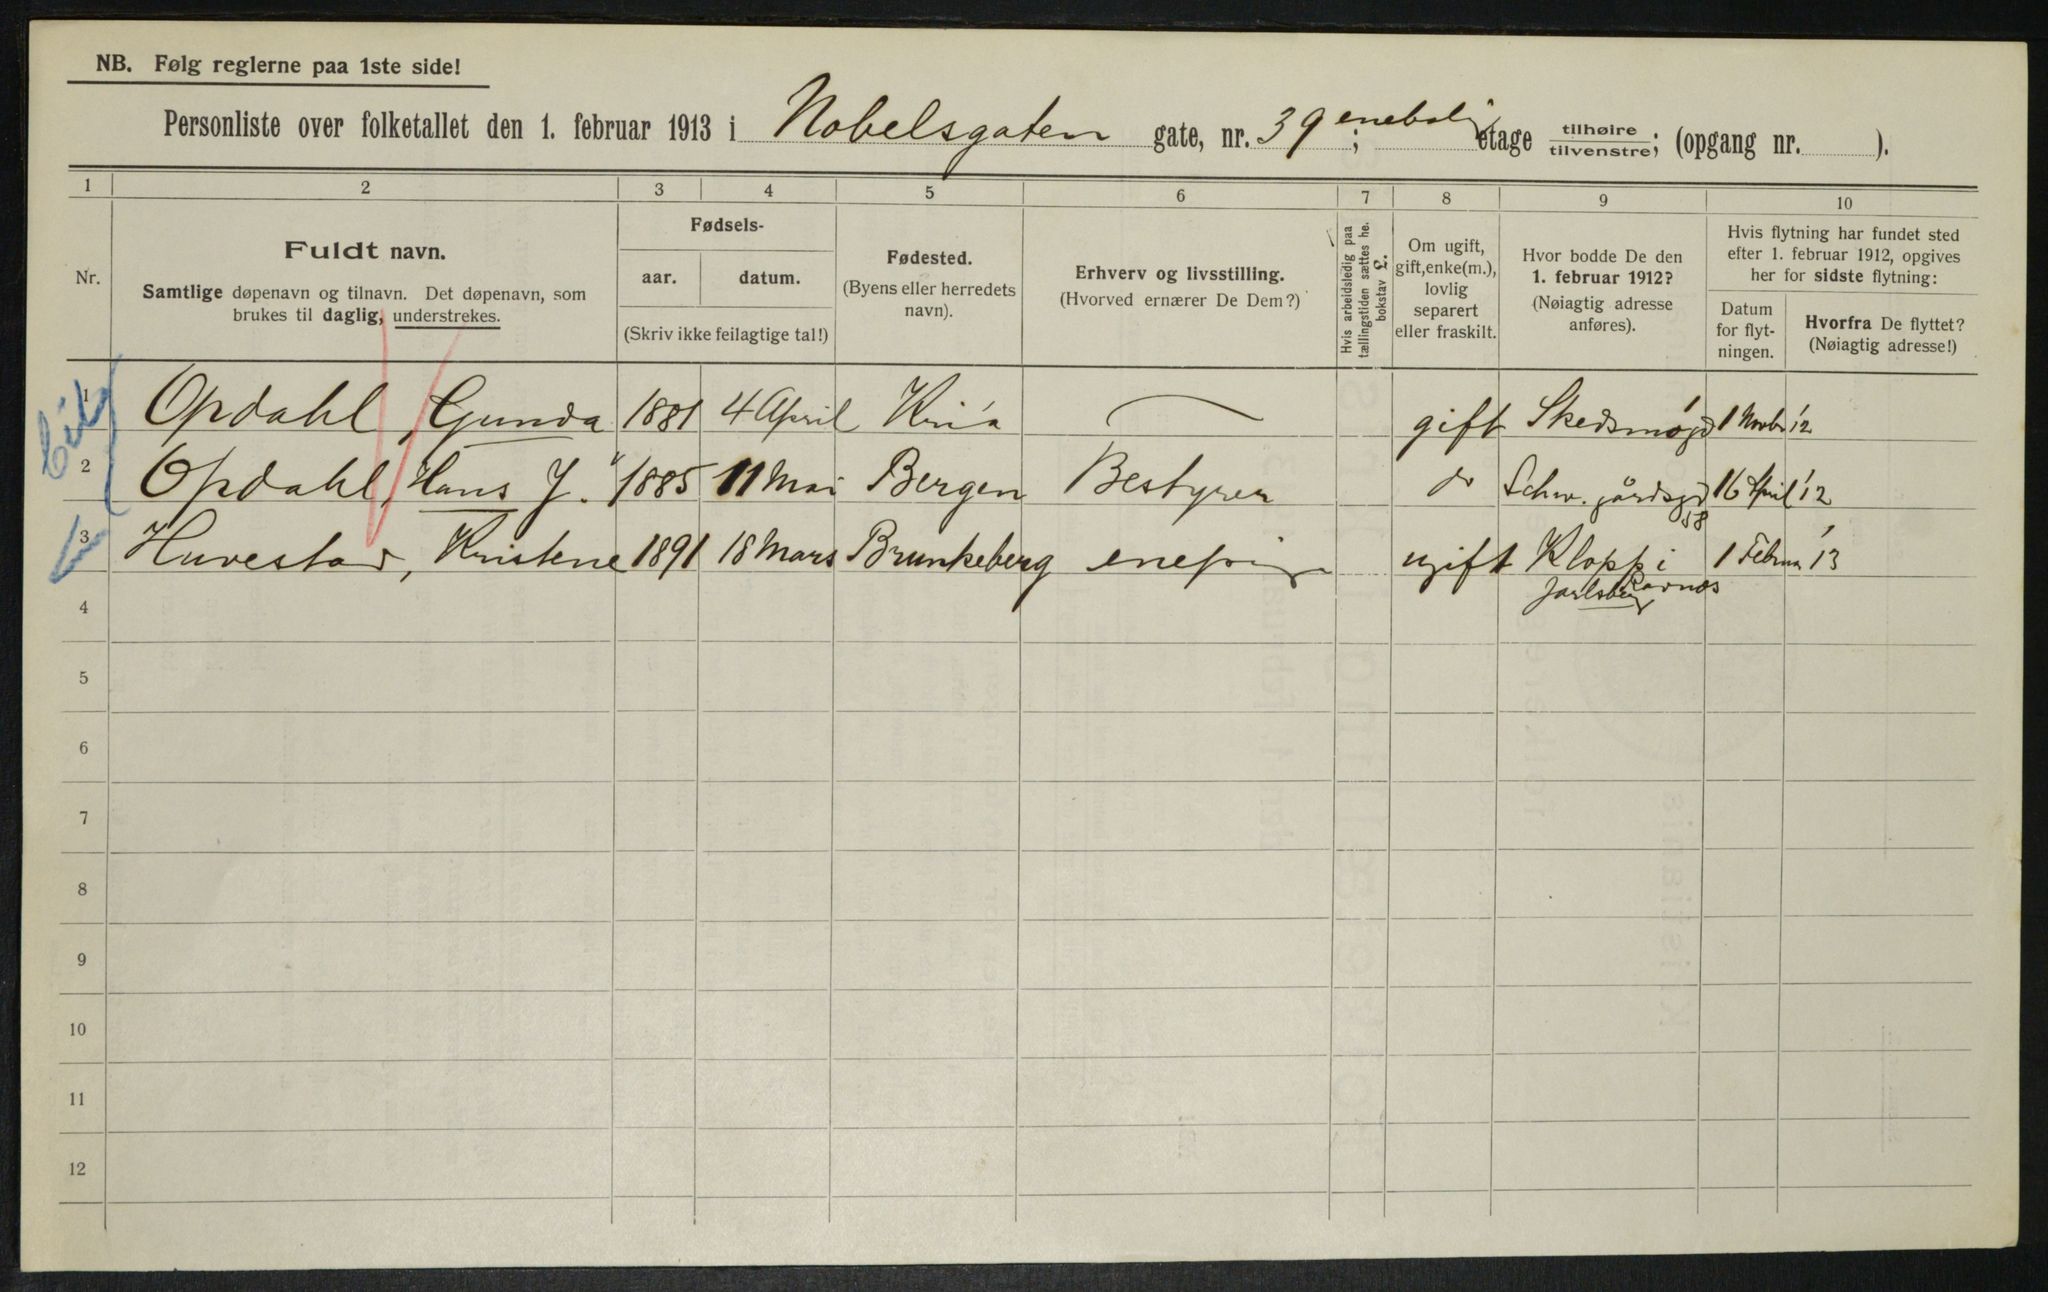 NB. Følg reglerne paa 1ste side!
Personliste over folketallet den 1. februar 1913 i Nobelsgaten gate, nr. 39 ; enebolig etage tilhøire / tilvenstre; (opgang nr. ).
1 2 3 4 5 6 7 8 9 10
Nr.
Fuldt navn.
Samtlige døpenavn og tilnavn. Det døpenavn, som
brukes til daglig, understrekes.
Fødsels-
aar. datum.
(Skriv ikke feilagtige tal!)
Fødested.
(Byens eller herredets
navn).
Erhverv og livsstilling.
(Hvorved ernærer De Dem?)
Hvis arbeidsledig paa
tællingstiden sættes he.
bokstav L.
Om ugift,
gift, enke(m.),
lovlig
separert
eller fraskilt.
Hvor bodde De den
1. februar 1912?
(Nøiagtig adresse
anføres).
Hvis flytning har fundet sted
efter 1. februar 1912, opgives
her for sidste flytning:
Datum
for flyt-
ningen.
Hvorfra De flyttet?
(Nøiagtig adresse!)
1 Opdahl, Gunda 1881 4 April Kri'a — gift 1 Novbr '12
2 Opdahl, Hans J. 1885 11 Mai Bergen Bestyrer do Schw. gårdsgd 58 16 April '12
3 Huvestad, Kristene 1891 18 Mars Brunkeberg enepige ugift Klopp i
Ravnes
Jarlsberg
1 Februar '13
4
5
6
7
8
9
10
11
12